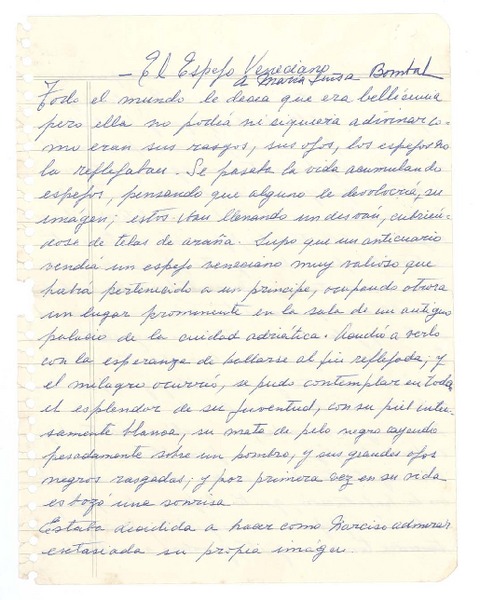 - El Espejo Veneciano
A María Luisa Bombal
Todo el mundo le decía que era bellísima
pero ella no podía ni siquiera adivinar co-
mo eran sus rasgos, sus ojos, los espejos no
la reflejaban. Se pasaba la vida acumulando
espejos, pensando que alguno le devolvería su
imagen; estos iban llenando un desván, cubrien-
dose de telas de araña. Supo que un anticuario
vendía un espejo veneciano muy valioso que
había pertenecido a un príncipe, ocupando otrora
un lugar prominente en la sala de un antiguo
palacio de la cuidad adriática. Acudió a verlo
con la esperanza de hallarse al fin reflejada; y
el milagro ocurrió, se pudo contemplar en todo
el esplendor de su juventud, con su piel inten-
samente blanca, su mata de pelo negro cayendo
pesadamente sobre un hombro, y sus grandes ojos
negros rasgados; y por primera vez en su vida
esbozó una sonrisa
Estaba decidida a hacer como Narciso admirar
extasiada su propia imágen.